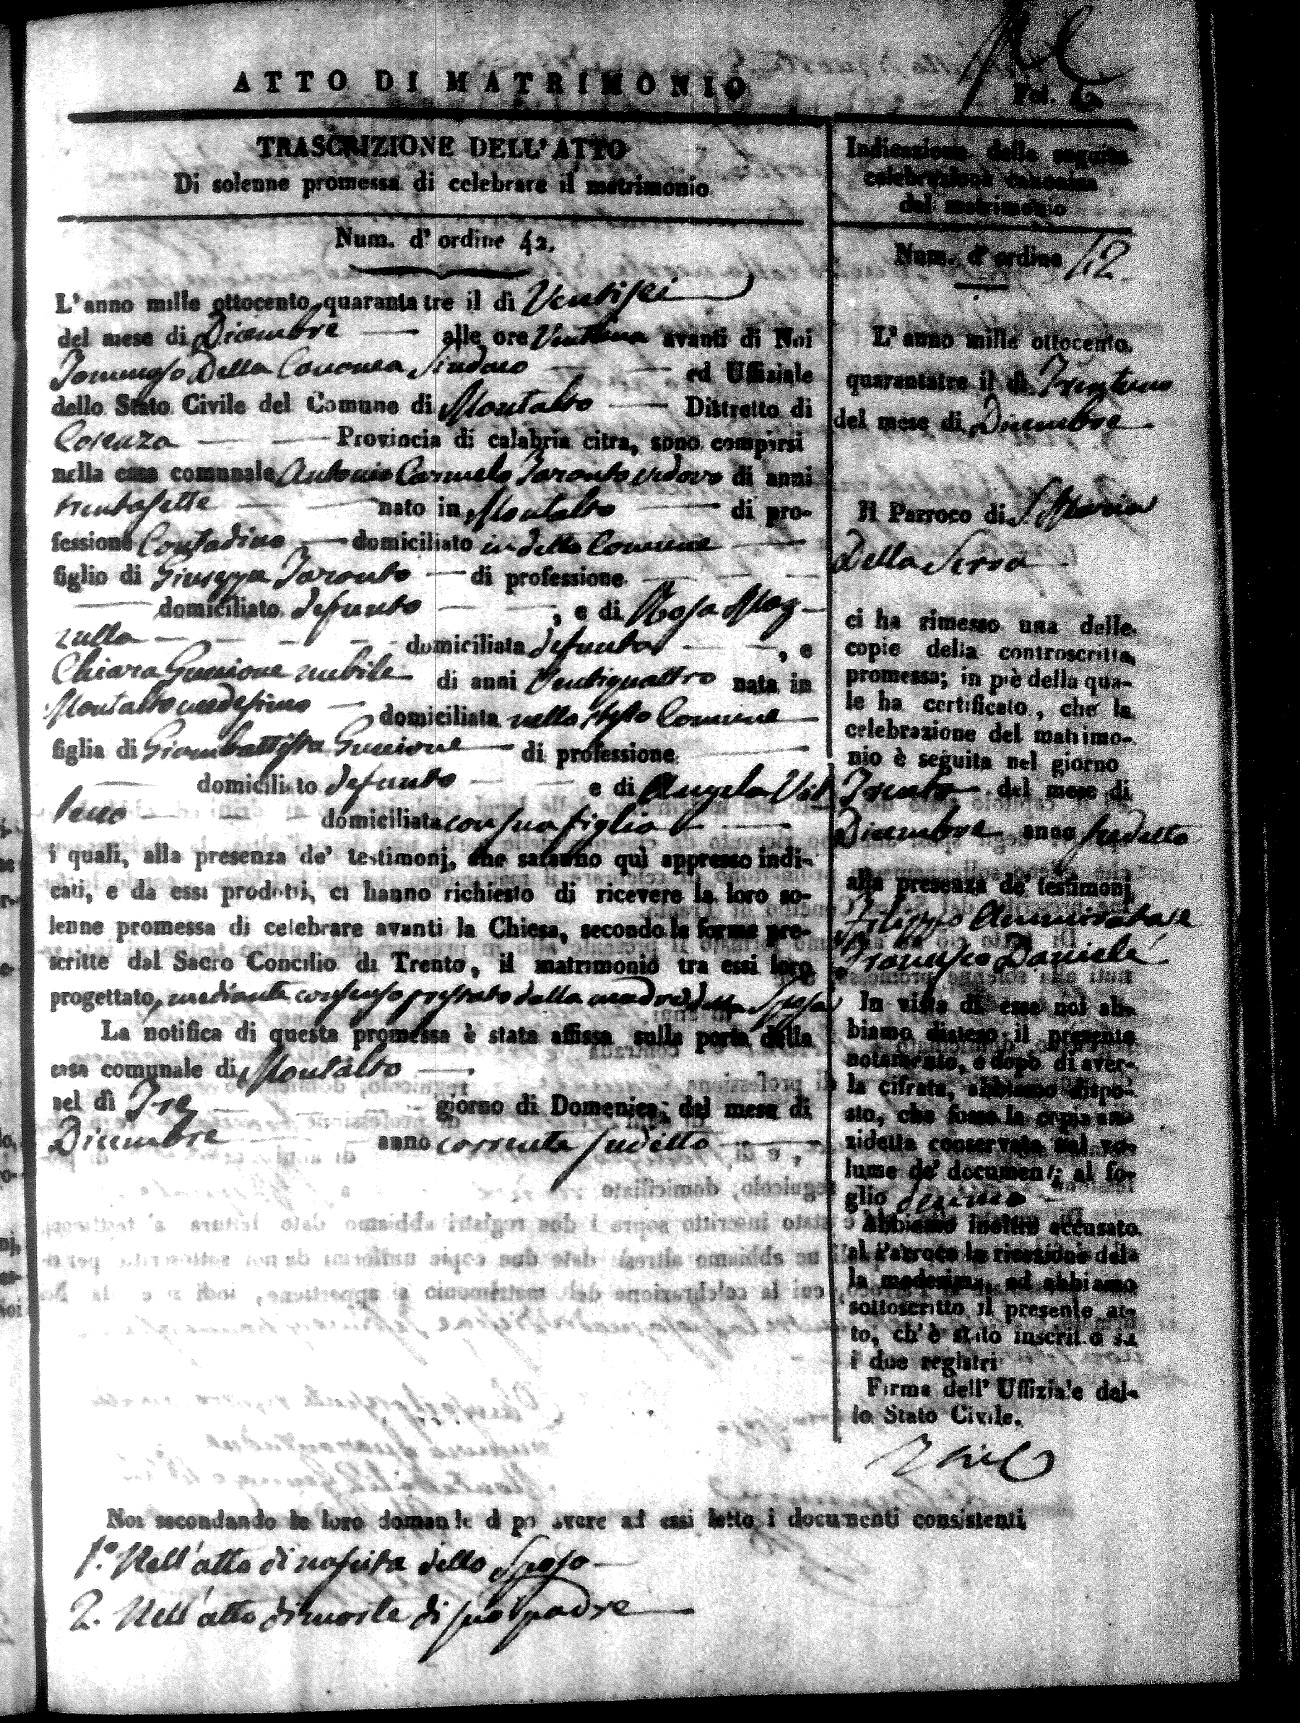 ATTO DI MATRIMONIO
Fol.
TRASCRIZIONE DELL'ATTO
Di solenne promessa di celebrare il matrimonio
Num. d'ordine 42.
L'anno mille ottocento quaranta tre il dì Ventisei
del mese di Dicembre alle ore avanti di Noi
Tommaso Della Cononea Sindaco ed Uffiziale
dello Stato Civile del Comune di Montalto Distretto di
Cosenza Provincia di calabria citra, sono comparsi
nella casa comunale Antonio Carmelo Taranto vedovo di anni
trentasette nato in Montalto di pro-
fessione Contadino domiciliato in detto Comune
figlio di Giuseppe Taranto di professione
domiciliato defunto , e di Rosa
domiciliata defunta , e
Chiara Guccione nubile di anni Ventiquattro nata in
Montalto medesimo domiciliata nello stesso Comune
figlia di Giambattista Guccione di professione
domiciliato defunto e di Angela
domiciliata con sua figlia
i quali, alla presenza de' testimonj, che saranno quì appresso indi-
cati, e da essi prodotti, ci hanno richiesto di ricevere la loro so-
lenne promessa di celebrare avanti la Chiesa, secondo le forme pre-
scritte dal Sacro Concilio di Trento, il matrimonio tra essi loro
progettato, mediante consenso prestato dalla madre della Sposa
La notifica di questa promessa è stata affissa sulla porta della
casa comunale di Montalto
nel dì Tre giorno di Domenica, del mese di
Dicembre anno corrente sudetto
Indicazione della seguita
celebrazione canonica
del matrimonio
Num. d'ordine 42
L'anno mille ottocento
quarantatre il dì Trentuno
del mese di Dicembre
Il Parroco di S. Maria
Della Serra
ci ha rimesso una delle
copie della controscritta
promessa; in piè della qua-
le ha certificato, che la
celebrazione del matrimo-
nio è seguita nel giorno
Trenta del mese di
Dicembre anno sudetto
alla presenza de' testimonj
Filippo
Francesco Daniele
In vista di esse noi ab-
biamo disteso il presente
notamento, e dopo di aver-
la cifrata, abbiamo dispo-
sto, che fosse la copia an-
zidetta conservata nel vo-
lume de' documenti al fo-
glio
Abbiamo inoltre accusato
al Parroco la ricezione della
la medesima, ed abbiamo
sottoscritto il presente at-
to, ch'è stato inscritto su
i due registri
Firma dell'Uffiziale del-
lo Stato Civile.
Noi secondando le loro domande dopo avere ad essi letto i documenti consistenti
1.° Nell'atto di nascita dello Sposo
2. Nell'atto di morte di suo padre